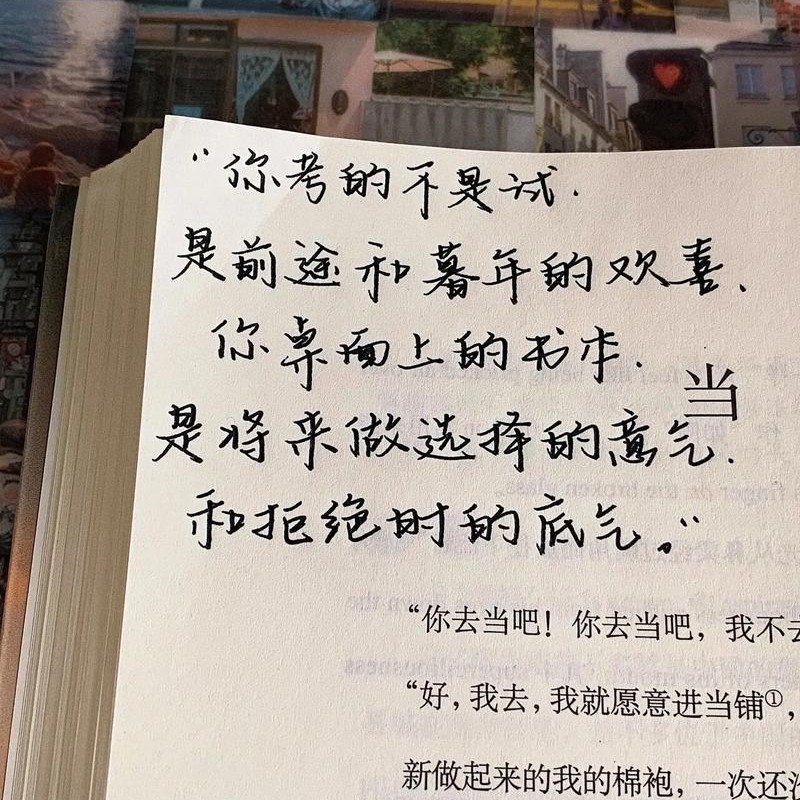 “你考的不是试.
是前途和暮年的欢喜.
你桌面上的书本.
当
是将来做选择的意气.
和拒绝时的底气。”
“你去当吧！你去当吧，我不去
“好，我去，我就愿意进当铺①，
新做起来的我的棉袍，一次还没